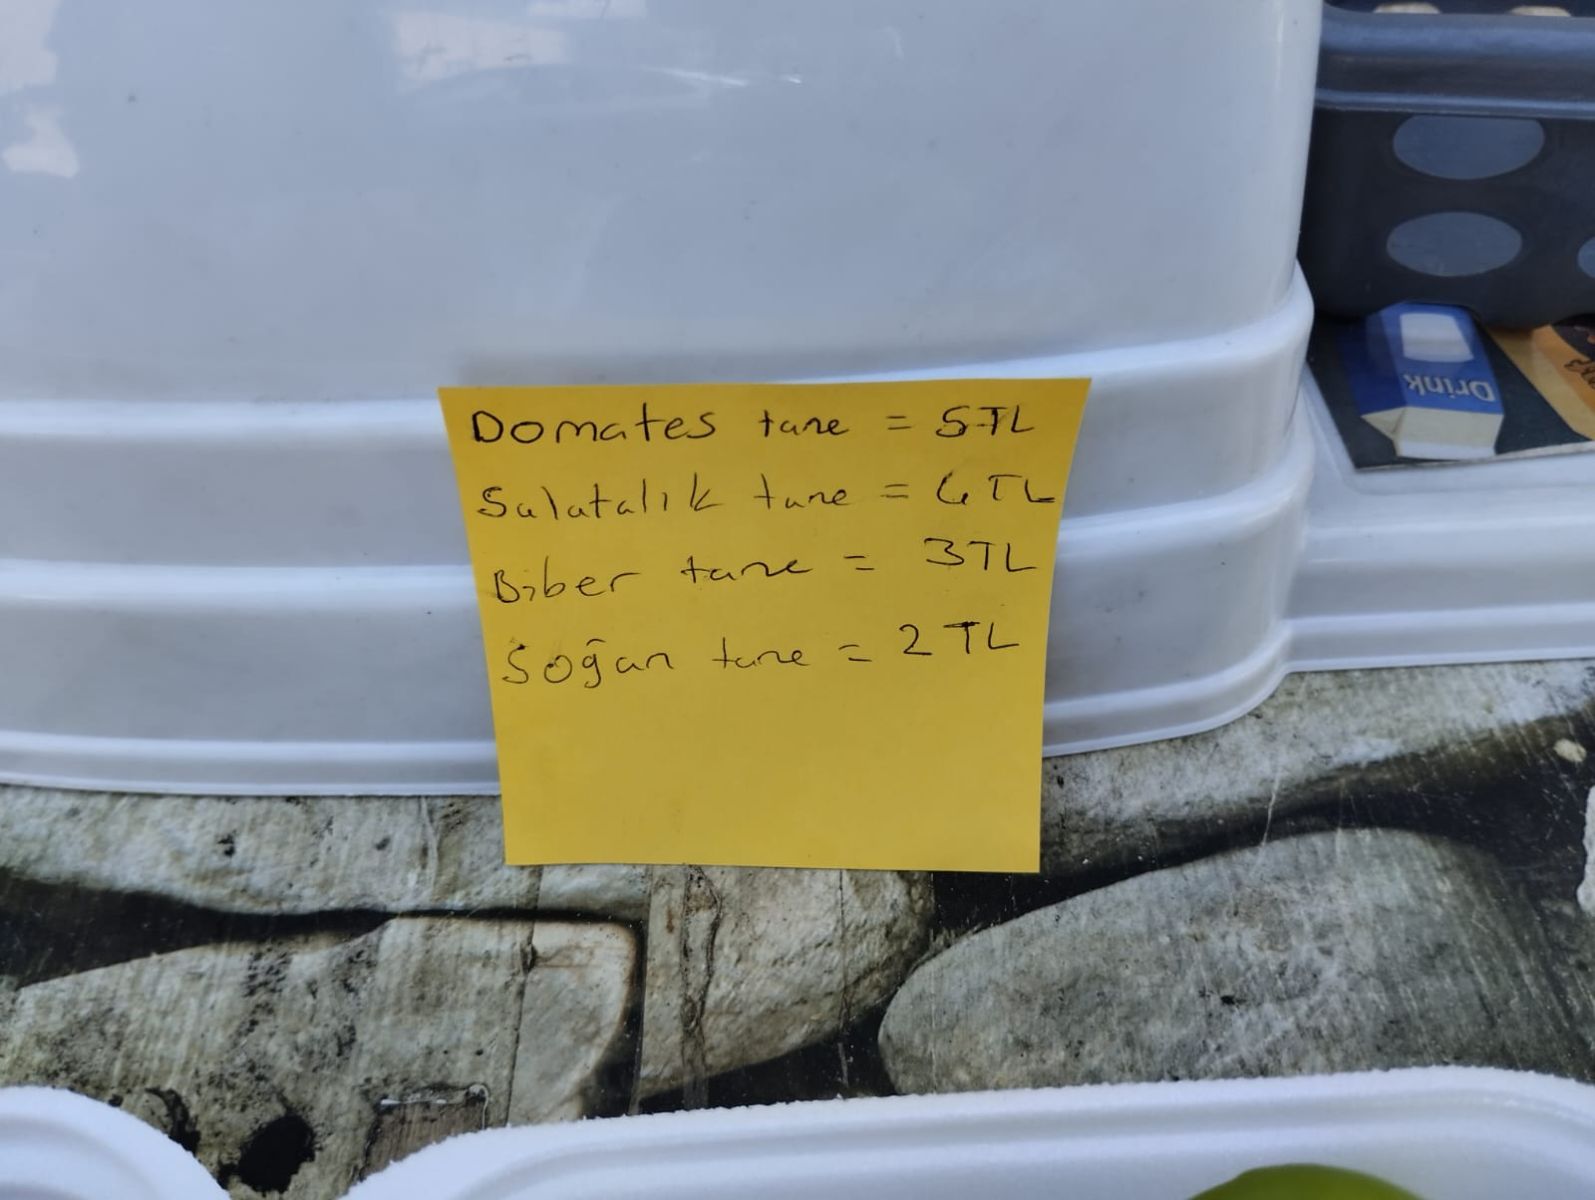 Domates tane = 5TL
Salatalık tane = 4TL
Biber tane = 3TL
Soğan tane = 2TL
Drink